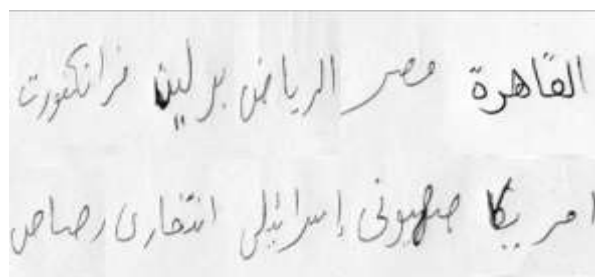 القاهرة مصر الرياض برلين فرانكفورت
امريكا صهيونى إسرائيلى انتحارى رصاص